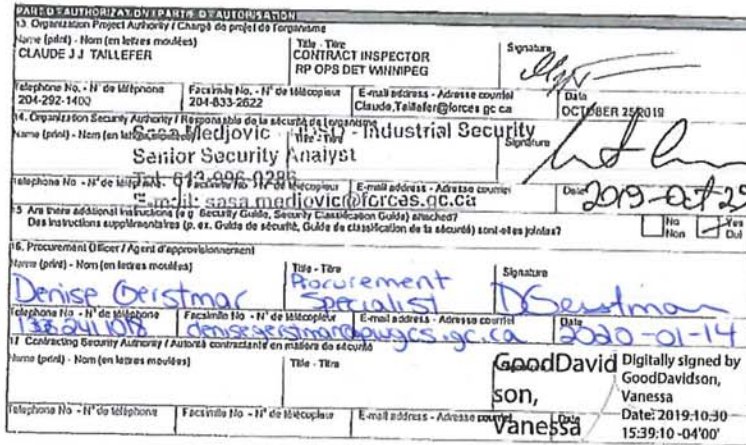 PART D - AUTHORIZATION / PARTIE D - AUTORISATION
13. Organization Project Authority / Chargé de projet de l'organisme
Name (print) - Nom (en lettres moulées)
CLAUDE J J TAILLEFER
Title - Titre
CONTRACT INSPECTOR
RP OPS DET WINNIPEG
Signature
Telephone No. - N° de téléphone
204-292-1400
Facsimile No. - N° de télécopieur
204-833-2622
E-mail address - Adresse courriel
Claude.Taillefer@forces.gc.ca
Date
OCTOBER 25 2019
14. Organization Security Authority / Responsable de la sécurité de l'organisme
Name (print) - Nom (en lettres moulées)
Title - Titre
Sasa Medjovic - DDSO - Industrial Security
Senior Security Analyst
Tel: 613-996-0286
E-mail: sasa.medjovic@forces.gc.ca
Signature
Telephone No. - N° de téléphone
Facsimile No. - N° de télécopieur
E-mail address - Adresse courriel
Date
2019-Oct-25
15. Are there additional instructions (e.g. Security Guide, Security Classification Guide) attached?
Des instructions supplémentaires (p. ex. Guide de sécurité, Guide de classification de la sécurité) sont-elles jointes?
No
Non
Yes
Oui
16. Procurement Officer / Agent d'approvisionnement
Name (print) - Nom (en lettres moulées)
Denise Gerstmar
Title - Titre
Procurement
Specialist
Signature
DGerstmar
Telephone No. - N° de téléphone
Facsimile No. - N° de télécopieur
denise.gerstmar@pwgsc.gc.ca
E-mail address - Adresse courriel
Date
2020-01-14
17. Contracting Security Authority / Autorité contractante en matière de sécurité
Name (print) - Nom (en lettres moulées)
Title - Titre
GoodDavid
son,
Vanessa
Digitally signed by
GoodDavidson,
Vanessa
Date: 2019.10.30
15:39:10 -04'00'
Telephone No. - N° de téléphone
Facsimile No. - N° de télécopieur
E-mail address - Adresse courriel
Date